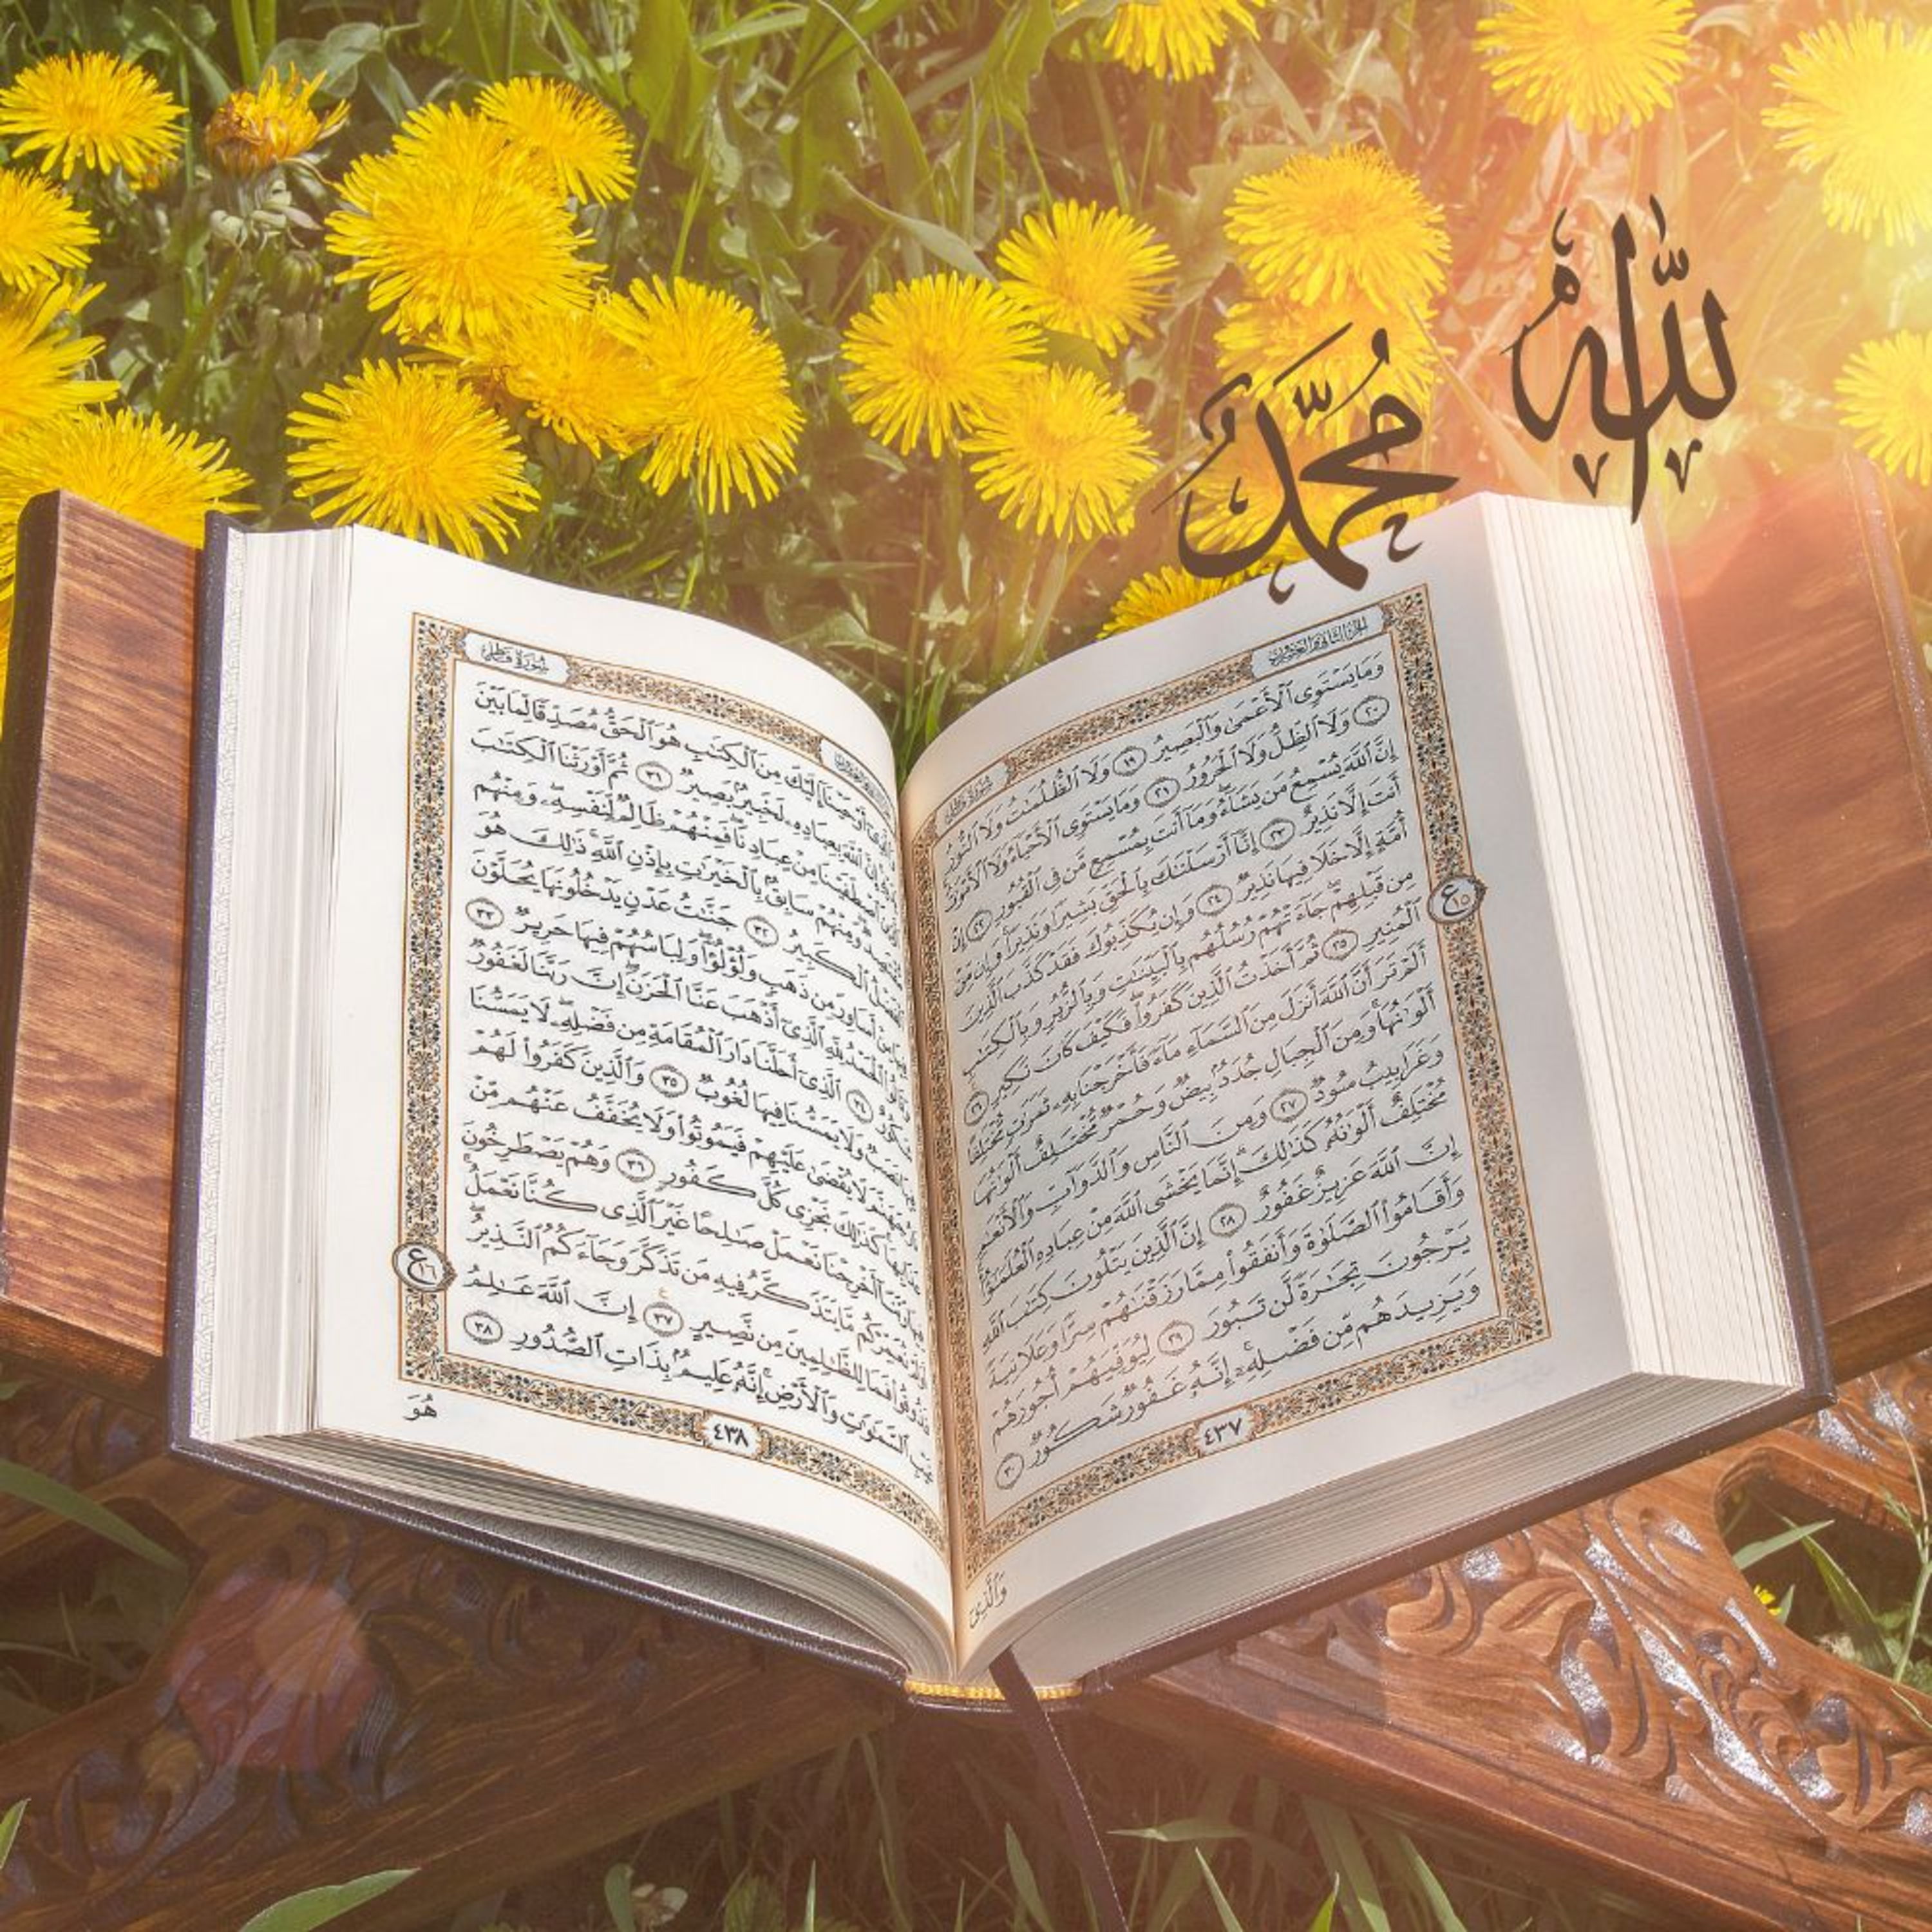 ٱللَّهُ
مُحَمَّدٌ
الجزء الثاني والعشرون
سورة فاطر
وَمَا يَسْتَوِى ٱلْأَعْمَىٰ وَٱلْبَصِيرُ ١٩ وَلَا ٱلظُّلُمَٰتُ وَلَا ٱلنُّورُ
٢٠ وَلَا ٱلظِّلُّ وَلَا ٱلْحَرُورُ ٢١ وَمَا يَسْتَوِى ٱلْأَحْيَآءُ وَلَا ٱلْأَمْوَٰتُ
إِنَّ ٱللَّهَ يُسْمِعُ مَن يَشَآءُ وَمَآ أَنتَ بِمُسْمِعٍ مَّن فِى ٱلْقُبُورِ ٢٢ إِنْ
أَنتَ إِلَّا نَذِيرٌ ٢٣ إِنَّآ أَرْسَلْنَٰكَ بِٱلْحَقِّ بَشِيرًا وَنَذِيرًا وَإِن مِّنْ
أُمَّةٍ إِلَّا خَلَا فِيهَا نَذِيرٌ ٢٤ وَإِن يُكَذِّبُوكَ فَقَدْ كَذَّبَ ٱلَّذِينَ
مِن قَبْلِهِمْ جَآءَتْهُمْ رُسُلُهُم بِٱلْبَيِّنَٰتِ وَبِٱلزُّبُرِ وَبِٱلْكِتَٰبِ
ٱلْمُنِيرِ ٢٥ ثُمَّ أَخَذْتُ ٱلَّذِينَ كَفَرُوا۟ فَكَيْفَ كَانَ نَكِيرِ ٢٦
أَلَمْ تَرَ أَنَّ ٱللَّهَ أَنزَلَ مِنَ ٱلسَّمَآءِ مَآءً فَأَخْرَجْنَا بِهِۦ ثَمَرَٰتٍ مُّخْتَلِفًا
أَلْوَٰنُهَا وَمِنَ ٱلْجِبَالِ جُدَدٌۢ بِيضٌ وَحُمْرٌ مُّخْتَلِفٌ أَلْوَٰنُهَا
وَغَرَابِيبُ سُودٌ ٢٧ وَمِنَ ٱلنَّاسِ وَٱلدَّوَآبِّ وَٱلْأَنْعَٰمِ
مُخْتَلِفٌ أَلْوَٰنُهُۥ كَذَٰلِكَ إِنَّمَا يَخْشَى ٱللَّهَ مِنْ عِبَادِهِ ٱلْعُلَمَٰٓؤُا۟
إِنَّ ٱللَّهَ عَزِيزٌ غَفُورٌ ٢٨ إِنَّ ٱلَّذِينَ يَتْلُونَ كِتَٰبَ ٱللَّهِ
وَأَقَامُوا۟ ٱلصَّلَوٰةَ وَأَنفَقُوا۟ مِمَّا رَزَقْنَٰهُمْ سِرًّا وَعَلَانِيَةً
يَرْجُونَ تِجَٰرَةً لَّن تَبُورَ ٢٩ لِيُوَفِّيَهُمْ أُجُورَهُمْ
وَيَزِيدَهُم مِّن فَضْلِهِۦٓ إِنَّهُۥ غَفُورٌ شَكُورٌ ٣٠
ع ١٥
٤٣٧
وَٱلَّذِىٓ
سورة فاطر
أَوْحَيْنَآ إِلَيْكَ مِنَ ٱلْكِتَٰبِ هُوَ ٱلْحَقُّ مُصَدِّقًا لِّمَا بَيْنَ
إِنَّ ٱللَّهَ بِعِبَادِهِۦ لَخَبِيرٌۢ بَصِيرٌ ٣١ ثُمَّ أَوْرَثْنَا ٱلْكِتَٰبَ
ٱصْطَفَيْنَا مِنْ عِبَادِنَا فَمِنْهُمْ ظَالِمٌ لِّنَفْسِهِۦ وَمِنْهُم
وَمِنْهُمْ سَابِقٌۢ بِٱلْخَيْرَٰتِ بِإِذْنِ ٱللَّهِ ذَٰلِكَ هُوَ
ٱلْكَبِيرُ ٣٢ جَنَّٰتُ عَدْنٍ يَدْخُلُونَهَا يُحَلَّوْنَ
مِنْ أَسَاوِرَ مِن ذَهَبٍ وَلُؤْلُؤًا وَلِبَاسُهُمْ فِيهَا حَرِيرٌ ٣٣
ٱلْحَمْدُ لِلَّهِ ٱلَّذِىٓ أَذْهَبَ عَنَّا ٱلْحَزَنَ إِنَّ رَبَّنَا لَغَفُورٌ
٣٤ ٱلَّذِىٓ أَحَلَّنَا دَارَ ٱلْمُقَامَةِ مِن فَضْلِهِۦ لَا يَمَسُّنَا
وَلَا يَمَسُّنَا فِيهَا لُغُوبٌ ٣٥ وَٱلَّذِينَ كَفَرُوا۟ لَهُمْ
لَا يُقْضَىٰ عَلَيْهِمْ فَيَمُوتُوا۟ وَلَا يُخَفَّفُ عَنْهُم مِّنْ
كَذَٰلِكَ نَجْزِى كُلَّ كَفُورٍ ٣٦ وَهُمْ يَصْطَرِخُونَ
أَخْرِجْنَا نَعْمَلْ صَٰلِحًا غَيْرَ ٱلَّذِى كُنَّا نَعْمَلُ
نُعَمِّرْكُم مَّا يَتَذَكَّرُ فِيهِ مَن تَذَكَّرَ وَجَآءَكُمُ ٱلنَّذِيرُ
فَمَا لِلظَّٰلِمِينَ مِن نَّصِيرٍ ٣٧ إِنَّ ٱللَّهَ عَٰلِمُ
ٱلسَّمَٰوَٰتِ وَٱلْأَرْضِ إِنَّهُۥ عَلِيمٌۢ بِذَاتِ ٱلصُّدُورِ ٣٨
ع ١٦
٤٣٨
هُوَ